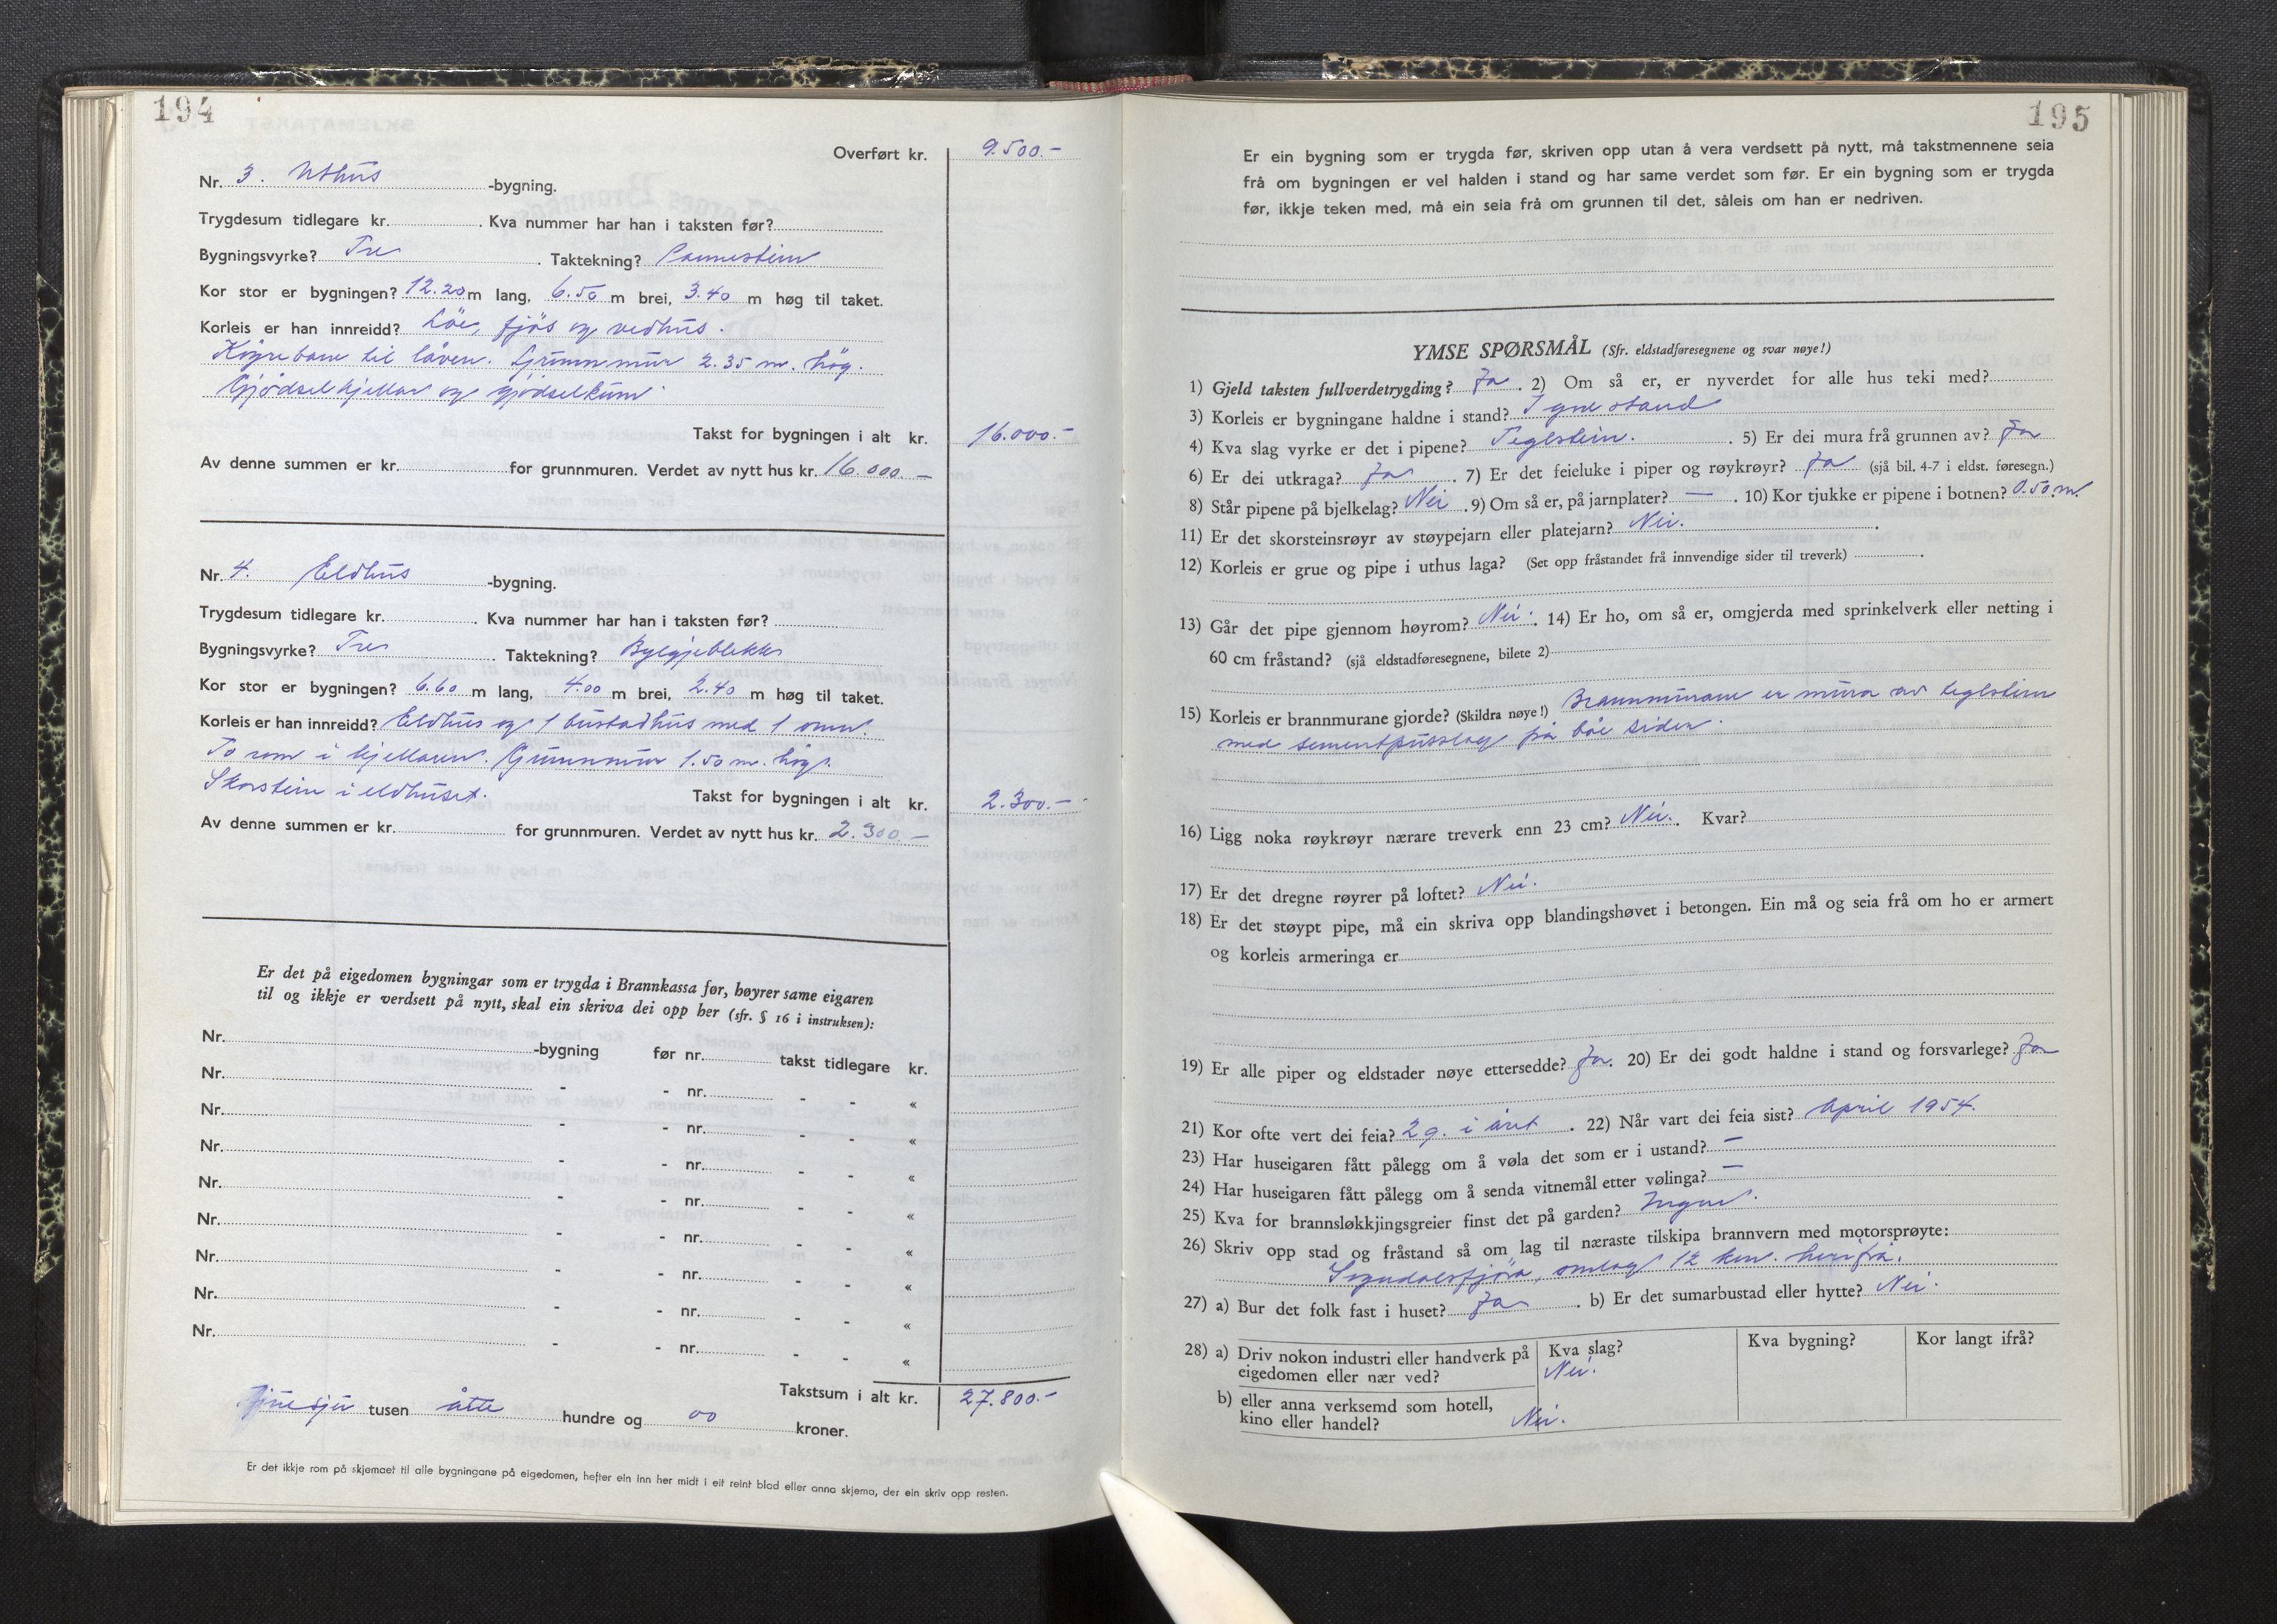 194
Overført kr. 9.500.-
Nr. 3. Uthus -bygning.
Trygdesum tidlegare kr. . Kva nummer har han i taksten før?
Bygningsvyrke? Tre . Taktekning? Pannestein
Kor stor er bygningen? 12.20 m lang, 6.50 m brei, 3.40 m høg til taket.
Korleis er han innreidd? Löe, fjös og vedhus.
Köyrebane til låven. Grunnmur 2.35 m. hög.
Gjödselkjellar og gjödselkum
Takst for bygningen i alt kr. 16.000.-
Av denne summen er kr. for grunnmuren. Verdet av nytt hus kr. 16.000.-
Nr. 4. Eldhus -bygning.
Trygdesum tidlegare kr. . Kva nummer har han i taksten før?
Bygningsvyrke? Tre . Taktekning? Bylgjeblekk
Kor stor er bygningen? 6.60 m lang, 4.00 m brei, 2.40 m høg til taket.
Korleis er han innreidd? Eldhus og 1 bustadhus med 1 omn.
To rom i kjellaren. Grunnmur 1.50 m. høg.
Skorstein i eldhuset.
Takst for bygningen i alt kr. 2.300.-
Av denne summen er kr. for grunnmuren. Verdet av nytt hus kr. 2.300.-
Er det på eigedomen bygningar som er trygda i Brannkassa før, høyrer same eigaren
til og ikkje er verdsett på nytt, skal ein skriva dei opp her (sfr. § 16 i instruksen):
Nr. -bygning før nr. takst tidlegare kr.
Nr. - - nr. - - «
Nr. - - nr. - - «
Nr. - - nr. - - «
Nr. - - nr. - - «
Nr. - - nr. - - «
Nr. - - nr. - - «
Nr. - - nr. - - «
Nr. - - nr. - - «
Takstsum i alt kr. 27.800.-
tusen åtte hundre og 00 kroner.
Er det ikkje rom på skjemaet til alle bygningane på eigedomen, hefter ein inn her midt i eit reint blad eller anna skjema, der ein skriv opp resten.
195
Er ein bygning som er trygda før, skriven opp utan å vera verdsett på nytt, må takstmennene seia
frå om bygningen er vel halden i stand og har same verdet som før. Er ein bygning som er trygda
før, ikkje teken med, må ein seia frå om grunnen til det, såleis om han er nedriven.
YMSE SPØRSMÅL (Sfr. eldstadføresegnene og svar nøye!)
1) Gjeld taksten fullverdetrygding? Ja . 2) Om så er, er nyverdet for alle hus teki med?
3) Korleis er bygningane haldne i stand? I gne stand
4) Kva slag vyrke er det i pipene? Teglstein. . 5) Er dei mura frå grunnen av? Ja
6) Er dei utkraga? Ja . 7) Er det feieluke i piper og røykrøyr? Ja (sjå bil. 4-7 i eldst. føresegn.)
8) Står pipene på bjelkelag? Nei . 9) Om så er, på jarnplater? — . 10) Kor tjukke er pipene i botnen? 0.50 m.
11) Er det skorsteinsrøyr av støypejarn eller platejarn? Nei. .
12) Korleis er grue og pipe i uthus laga? (Set opp fråstandet frå innvendige sider til treverk) .
13) Går det pipe gjennom høyrom? Nei . 14) Er ho, om så er, omgjerda med sprinkelverk eller netting i
60 cm fråstand? (sjå eldstadføresegnene, bilete 2)
15) Korleis er brannmurane gjorde? (Skildra nøye!) Brannmurane er mura av teglstein
med sementpusslag på båe sider.
16) Ligg noka røykrøyr nærare treverk enn 23 cm? Nei. . Kvar?
17) Er det dregne røyrer på loftet? Nei.
18) Er det støypt pipe, må ein skriva opp blandingshøvet i betongen. Ein må og seia frå om ho er armert
og korleis armeringa er
19) Er alle piper og eldstader nøye ettersedde? Ja. 20) Er dei godt haldne i stand og forsvarlege? Ja
21) Kor ofte vert dei feia? 2 g. i året . 22) Når vart dei feia sist? April 1954.
23) Har huseigaren fått pålegg om å vøla det som er i ustand? —
24) Har huseigaren fått pålegg om å senda vitnemål etter vølinga? —
25) Kva for brannsløkkjingsgreier finst det på garden? Ingen.
26) Skriv opp stad og fråstand så om lag til næraste tilskipa brannvern med motorsprøyte:
Sogndalsfjöra, omlag 12 km. herifrå.
27) a) Bur det folk fast i huset? Ja . b) Er det sumarbustad eller hytte? Nei.
28) a) Driv nokon industri eller handverk på eigedomen eller nær ved? Kva slag? Nei. Kva bygning? Kor langt ifrå?
b) eller anna verksemd som hotell, kino eller handel? Nei.